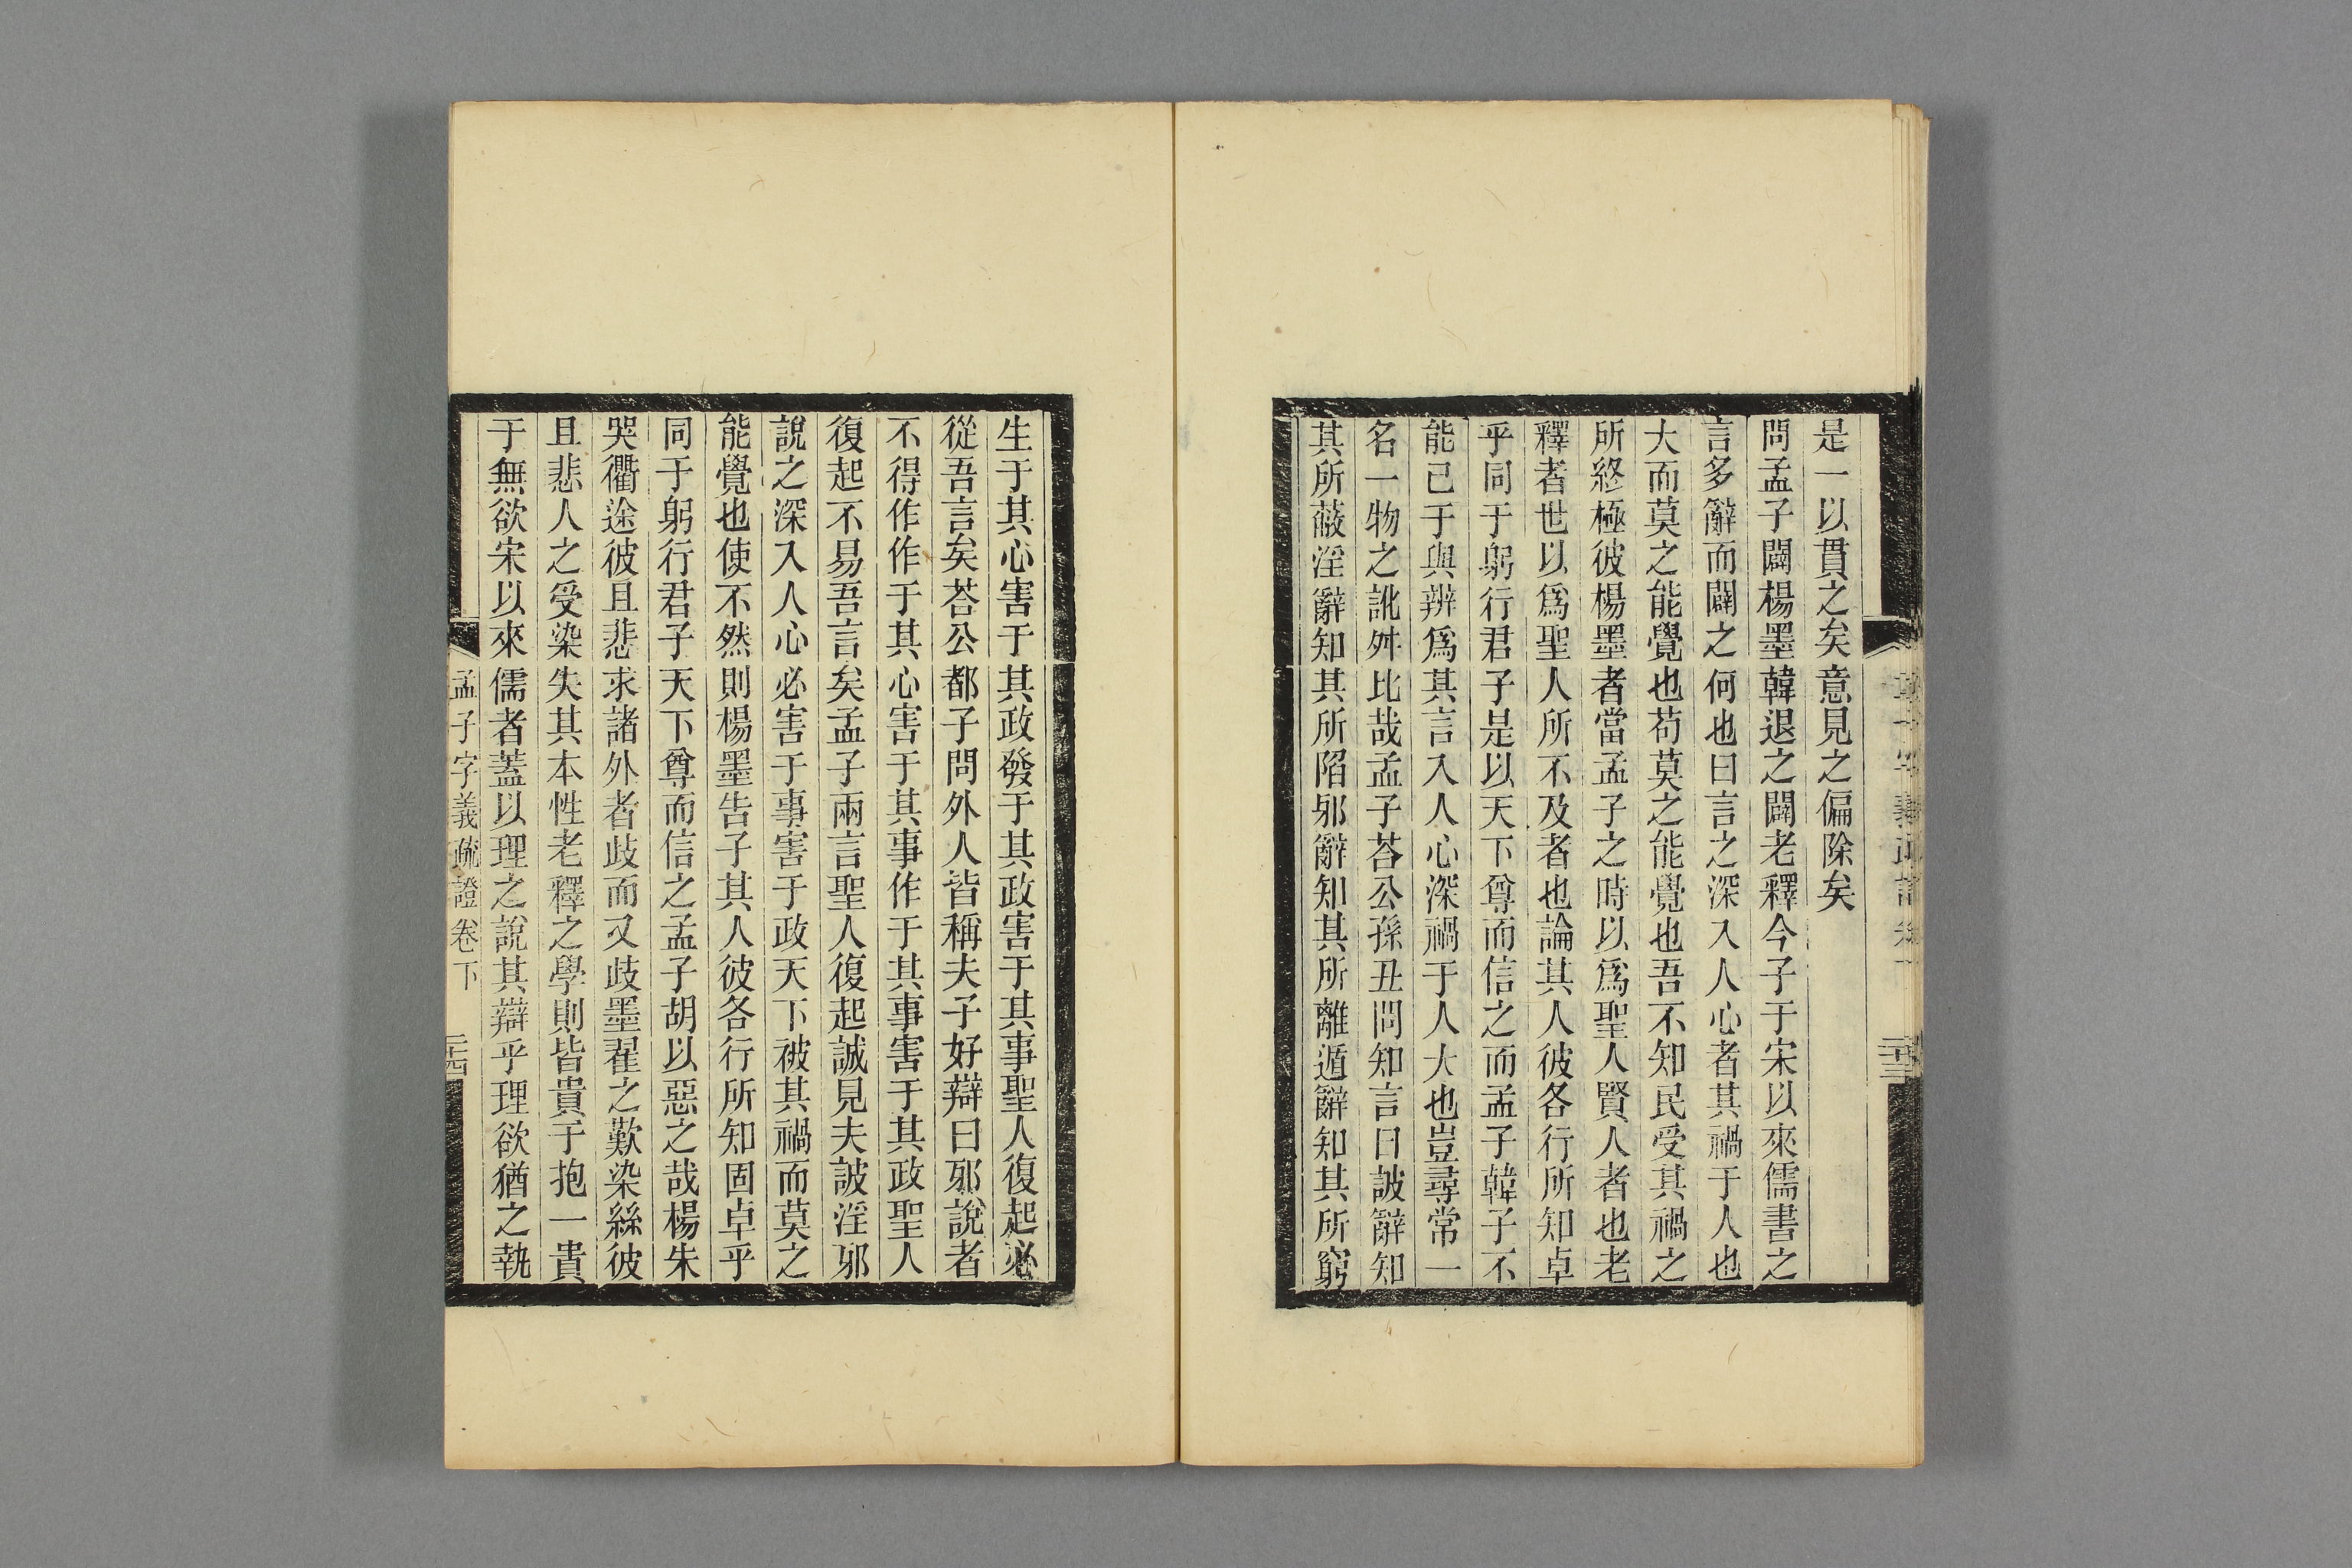 是一以貫之矣意見之偏除矣
問孟子闢楊墨韓退之闢老釋今子于宋以來儒書之
言多辭而闢之何也曰言之深入人心者其禍于人也
大而莫之能覺也苟莫之能覺也吾不知民受其禍之
所終極彼楊墨者當孟子之時以爲聖人賢人者也老
釋者世以爲聖人所不及者也論其人彼各行所知卓
乎同于躬行君子是以天下尊而信之而孟子韓子不
能已于與辨爲其言入人心深禍于人大也豈尋常一
名一物之訛舛比哉孟子荅公孫丑問知言曰詖辭知
其所蔽淫辭知其所陷邪辭知其所離遁辭知其所窮
生于其心害于其政發于其政害于其事聖人復起必
從吾言矣荅公都子問外人皆稱夫子好辯曰邪說者
不得作作于其心害于其事作于其事害于其政聖人
復起不易吾言矣孟子兩言聖人復起誠見夫詖淫邪
說之深入人心必害于事害于政天下被其禍而莫之
能覺也使不然則楊墨告子其人彼各行所知固卓乎
同于躬行君子天下尊而信之孟子胡以惡之哉楊朱
哭衢途彼且悲求諸外者歧而又歧墨翟之歎染絲彼
且悲人之受染失其本性老釋之學則皆貴于抱一貴
于無欲宋以來儒者蓋以理之說其辯乎理欲猶之執
孟子字義疏證卷下
二十四